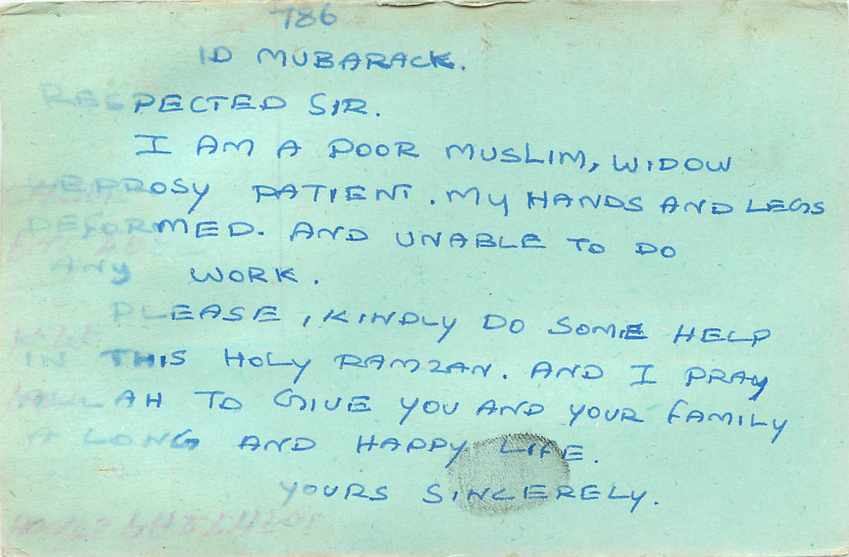 786
ID MUBARACK.
RESPECTED SIR.
I AM A POOR MUSLIM, WIDOW
LEPROSY PATIENT. MY HANDS AND LEGS
DEFORMED. AND UNABLE TO DO
ANY WORK.
PLEASE, KINDLY DO SOME HELP
IN THIS HOLY RAMZAN. AND I PRAY
ALLAH TO GIVE YOU AND YOUR FAMILY
A LONG AND HAPPY LIFE.
YOURS SINCERELY.